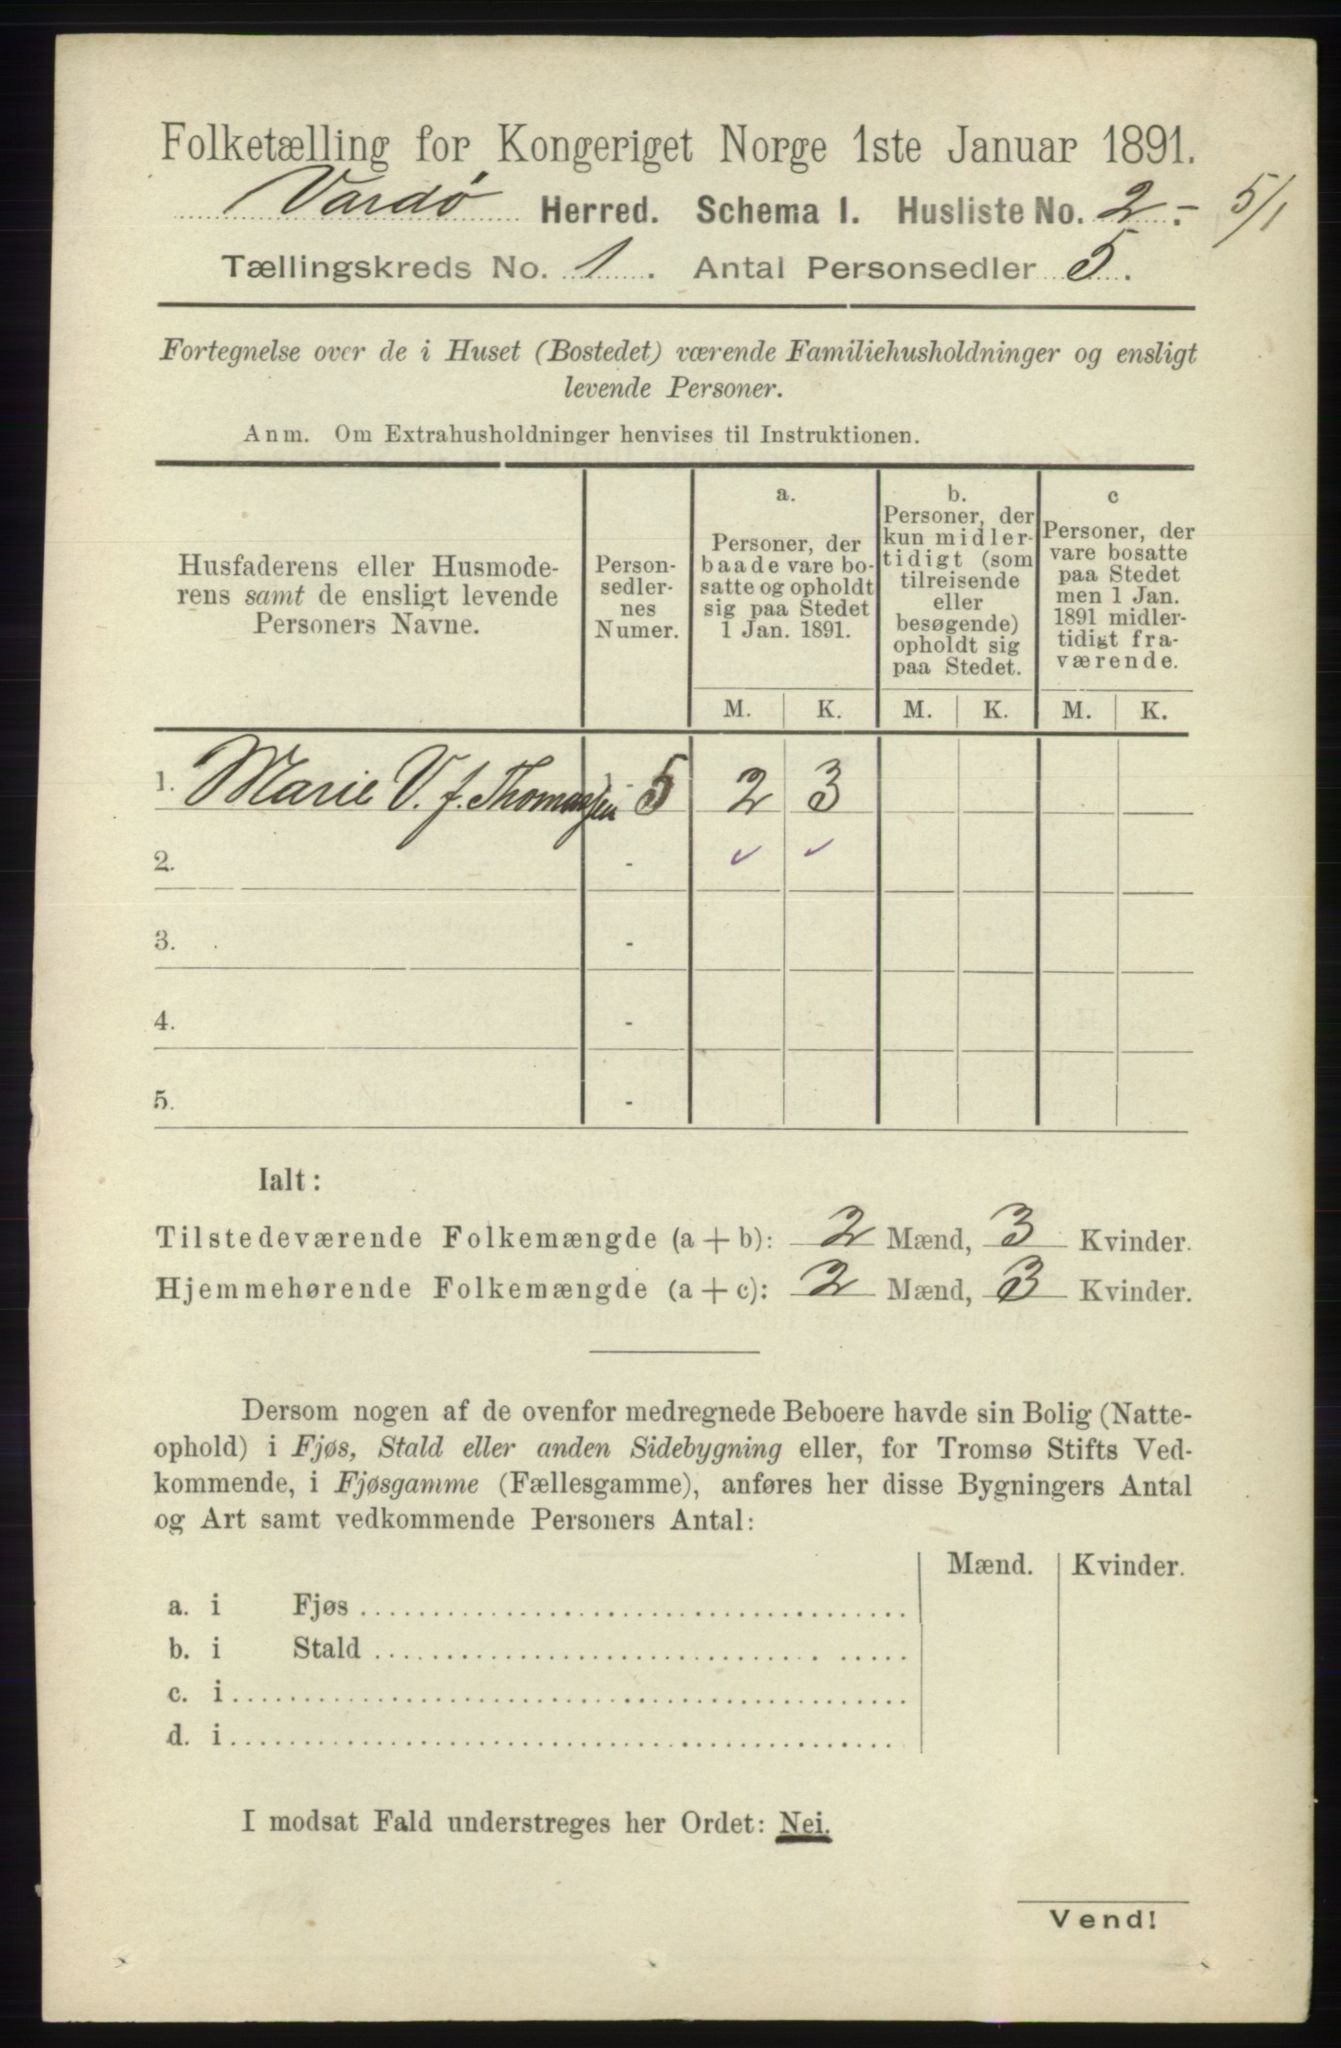 Folketælling for Kongeriget Norge 1ste Januar 1891.
Vardø Herred. Schema I. Husliste No. 2.- 5/1
Tællingskreds No. 1. Antal Personsedler 5.
Fortegnelse over de i Huset (Bostedet) værende Familiehusholdninger og ensligt
levende Personer.
Anm. Om Extrahusholdninger henvises til Instruktionen.
Husfaderens eller Husmode-
rens samt de ensligt levende
Personers Navne.
Person-
sedler-
nes
Numer.
a.
Personer, der
baade vare bo-
satte og opholdt
sig paa Stedet
1 Jan. 1891.
b.
Personer, der
kun midler-
tidigt (som
tilreisende
eller
besøgende)
opholdt sig
paa Stedet.
c
Personer, der
vare bosatte
paa Stedet
men 1 Jan.
1891 midler-
tidigt fra-
værende.
M. K. M. K. M. K.
1. Marie V. f. Thomassen 5 2 3
2. - ✓ ✓
3. -
4. -
5. -
Ialt:
Tilstedeværende Folkemængde (a + b): 2 Mænd, 3 Kvinder.
Hjemmehørende Folkemængde (a + c): 2 Mænd, 3 Kvinder.
Dersom nogen af de ovenfor medregnede Beboere havde sin Bolig (Natte-
ophold) i Fjøs, Stald eller anden Sidebygning eller, for Tromsø Stifts Ved-
kommende, i Fjøsgamme (Fællesgamme), anføres her disse Bygningers Antal
og Art samt vedkommende Personers Antal:
Mænd. Kvinder.
a. i Fjøs
b. i Stald
c. i
d. i
I modsat Fald understreges her Ordet: Nei.
Vend!